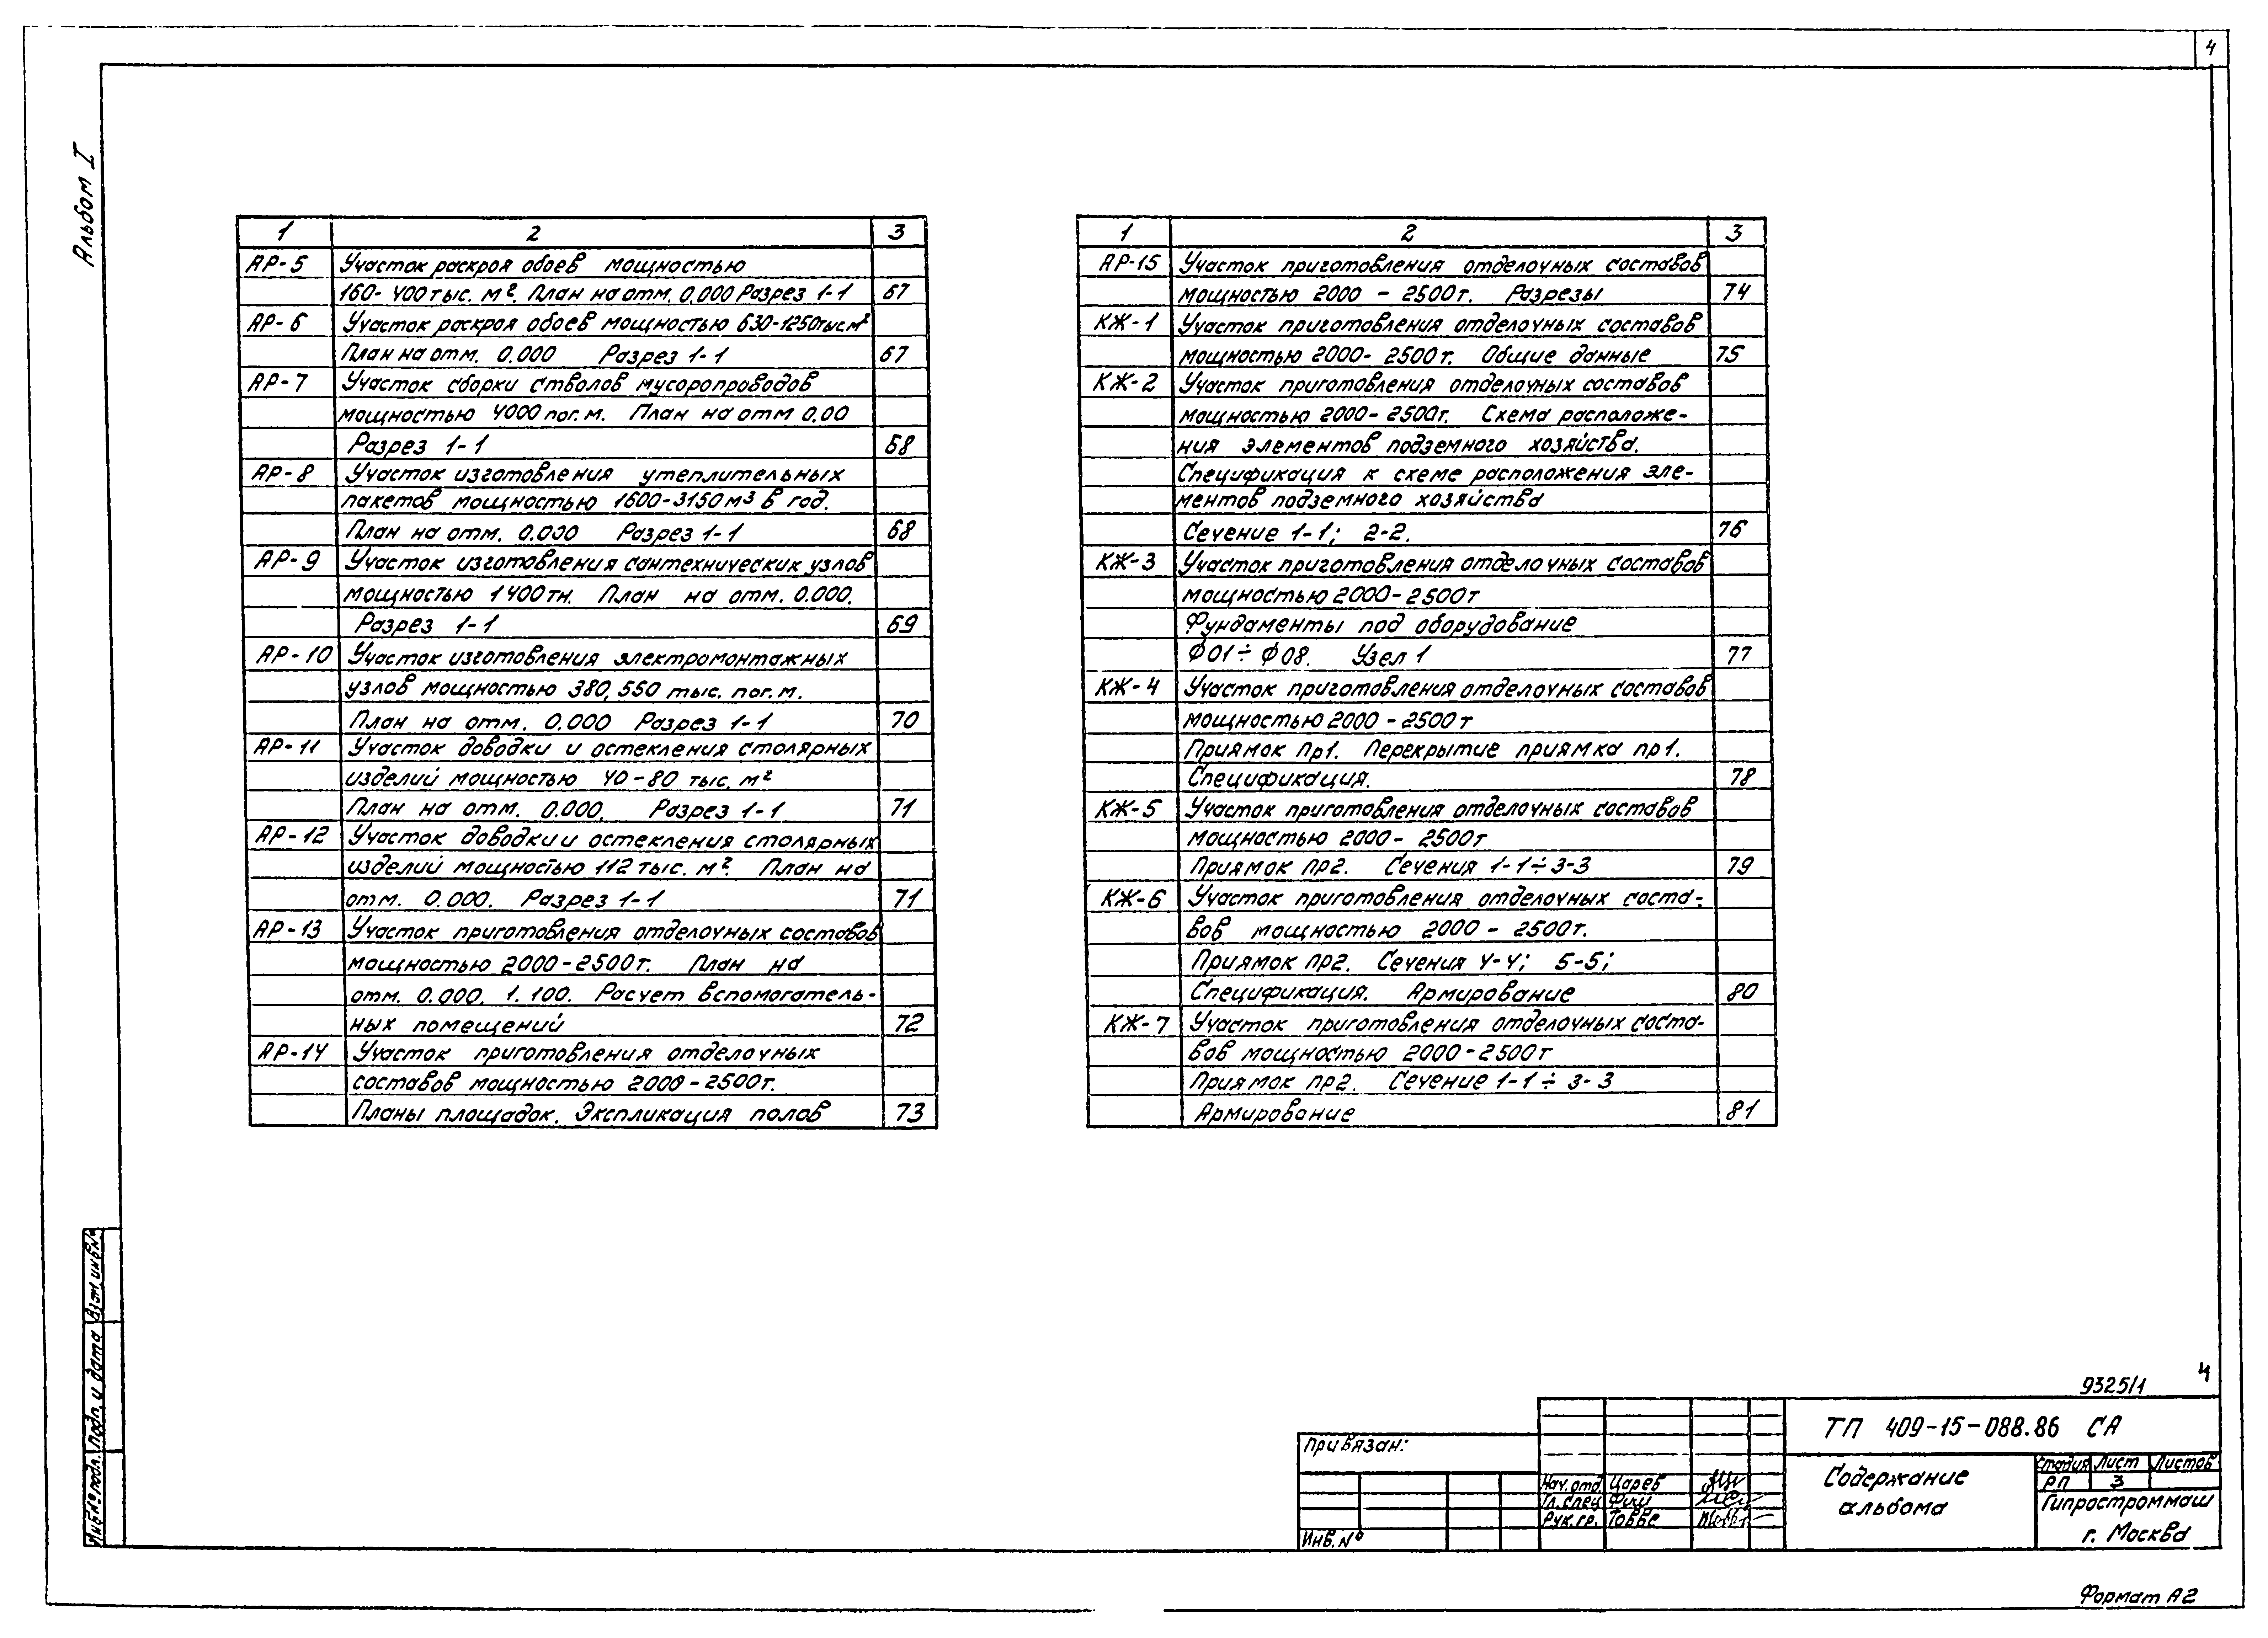 4
Альбом I
1 2 3
АР-5 Участок раскроя обоев мощностью
160-400 тыс. м². План на отм. 0.000 Разрез 1-1 67
АР-6 Участок раскроя обоев мощностью 630-1250тыс м²
План на отм. 0.000 Разрез 1-1 67
АР-7 Участок сборки стволов мусоропроводов
мощностью 4000 пог. м. План на отм 0.00
Разрез 1-1 68
АР-8 Участок изготовления утеплительных
пакетов мощностью 1600-3150 м³ в год.
План на отм. 0.000 Разрез 1-1 68
АР-9 Участок изготовления сантехнических узлов
мощностью 1400 тн. План на отм. 0.000.
Разрез 1-1 69
АР-10 Участок изготовления электромонтажных
узлов мощностью 380, 550 тыс. пог. м.
План на отм. 0.000 Разрез 1-1 70
АР-11 Участок доводки и остекления столярных
изделий мощностью 40-80 тыс. м²
План на отм. 0.000. Разрез 1-1 71
АР-12 Участок доводки и остекления столярных
изделий мощностью 112 тыс. м². План на
отм. 0.000. Разрез 1-1 71
АР-13 Участок приготовления отделочных составов
мощностью 2000-2500т. План на
отм. 0.000. 1.100. Расчет вспомогатель-
ных помещений 72
АР-14 Участок приготовления отделочных
составов мощностью 2000-2500т.
Планы площадок. Экспликация полов 73
1 2 3
АР-15 Участок приготовления отделочных составов
мощностью 2000 - 2500т. Разрезы 74
КЖ-1 Участок приготовления отделочных составов
мощностью 2000- 2500т. Общие данные 75
КЖ-2 Участок приготовления отделочных составов
мощностью 2000-2500т. Схема расположе-
ния элементов подземного хозяйства.
Спецификация к схеме расположения эле-
ментов подземного хозяйства
Сечение 1-1; 2-2. 76
КЖ-3 Участок приготовления отделочных составов
мощностью 2000-2500т
Фундаменты под оборудование
Ф01÷Ф08. Узел 1 77
КЖ-4 Участок приготовления отделочных составов
мощностью 2000-2500т
Приямок Пр1. Перекрытие приямка пр1.
Спецификация. 78
КЖ-5 Участок приготовления отделочных составов
мощностью 2000- 2500т
Приямок ПР2. Сечения 1-1÷3-3 79
КЖ-6 Участок приготовления отделочных соста-
вов мощностью 2000 - 2500т.
Приямок ПР2. Сечения 4-4; 5-5;
Спецификация. Армирование 80
КЖ-7 Участок приготовления отделочных соста-
вов мощностью 2000-2500т
Приямок ПР2. Сечение 1-1÷3-3
Армирование 81
Взам. инв №
Подп. и дата
Инв № подл.
9325/1 4
Привязан:
Инв. №
Нач. отд. Царев
Гл. спец
Рук. гр. Товве
ТП 409-15-088.86 СА
Содержание
альбома
Стадия Лист Листов
РП 3
Гипростроммаш
г. Москва
Формат А2